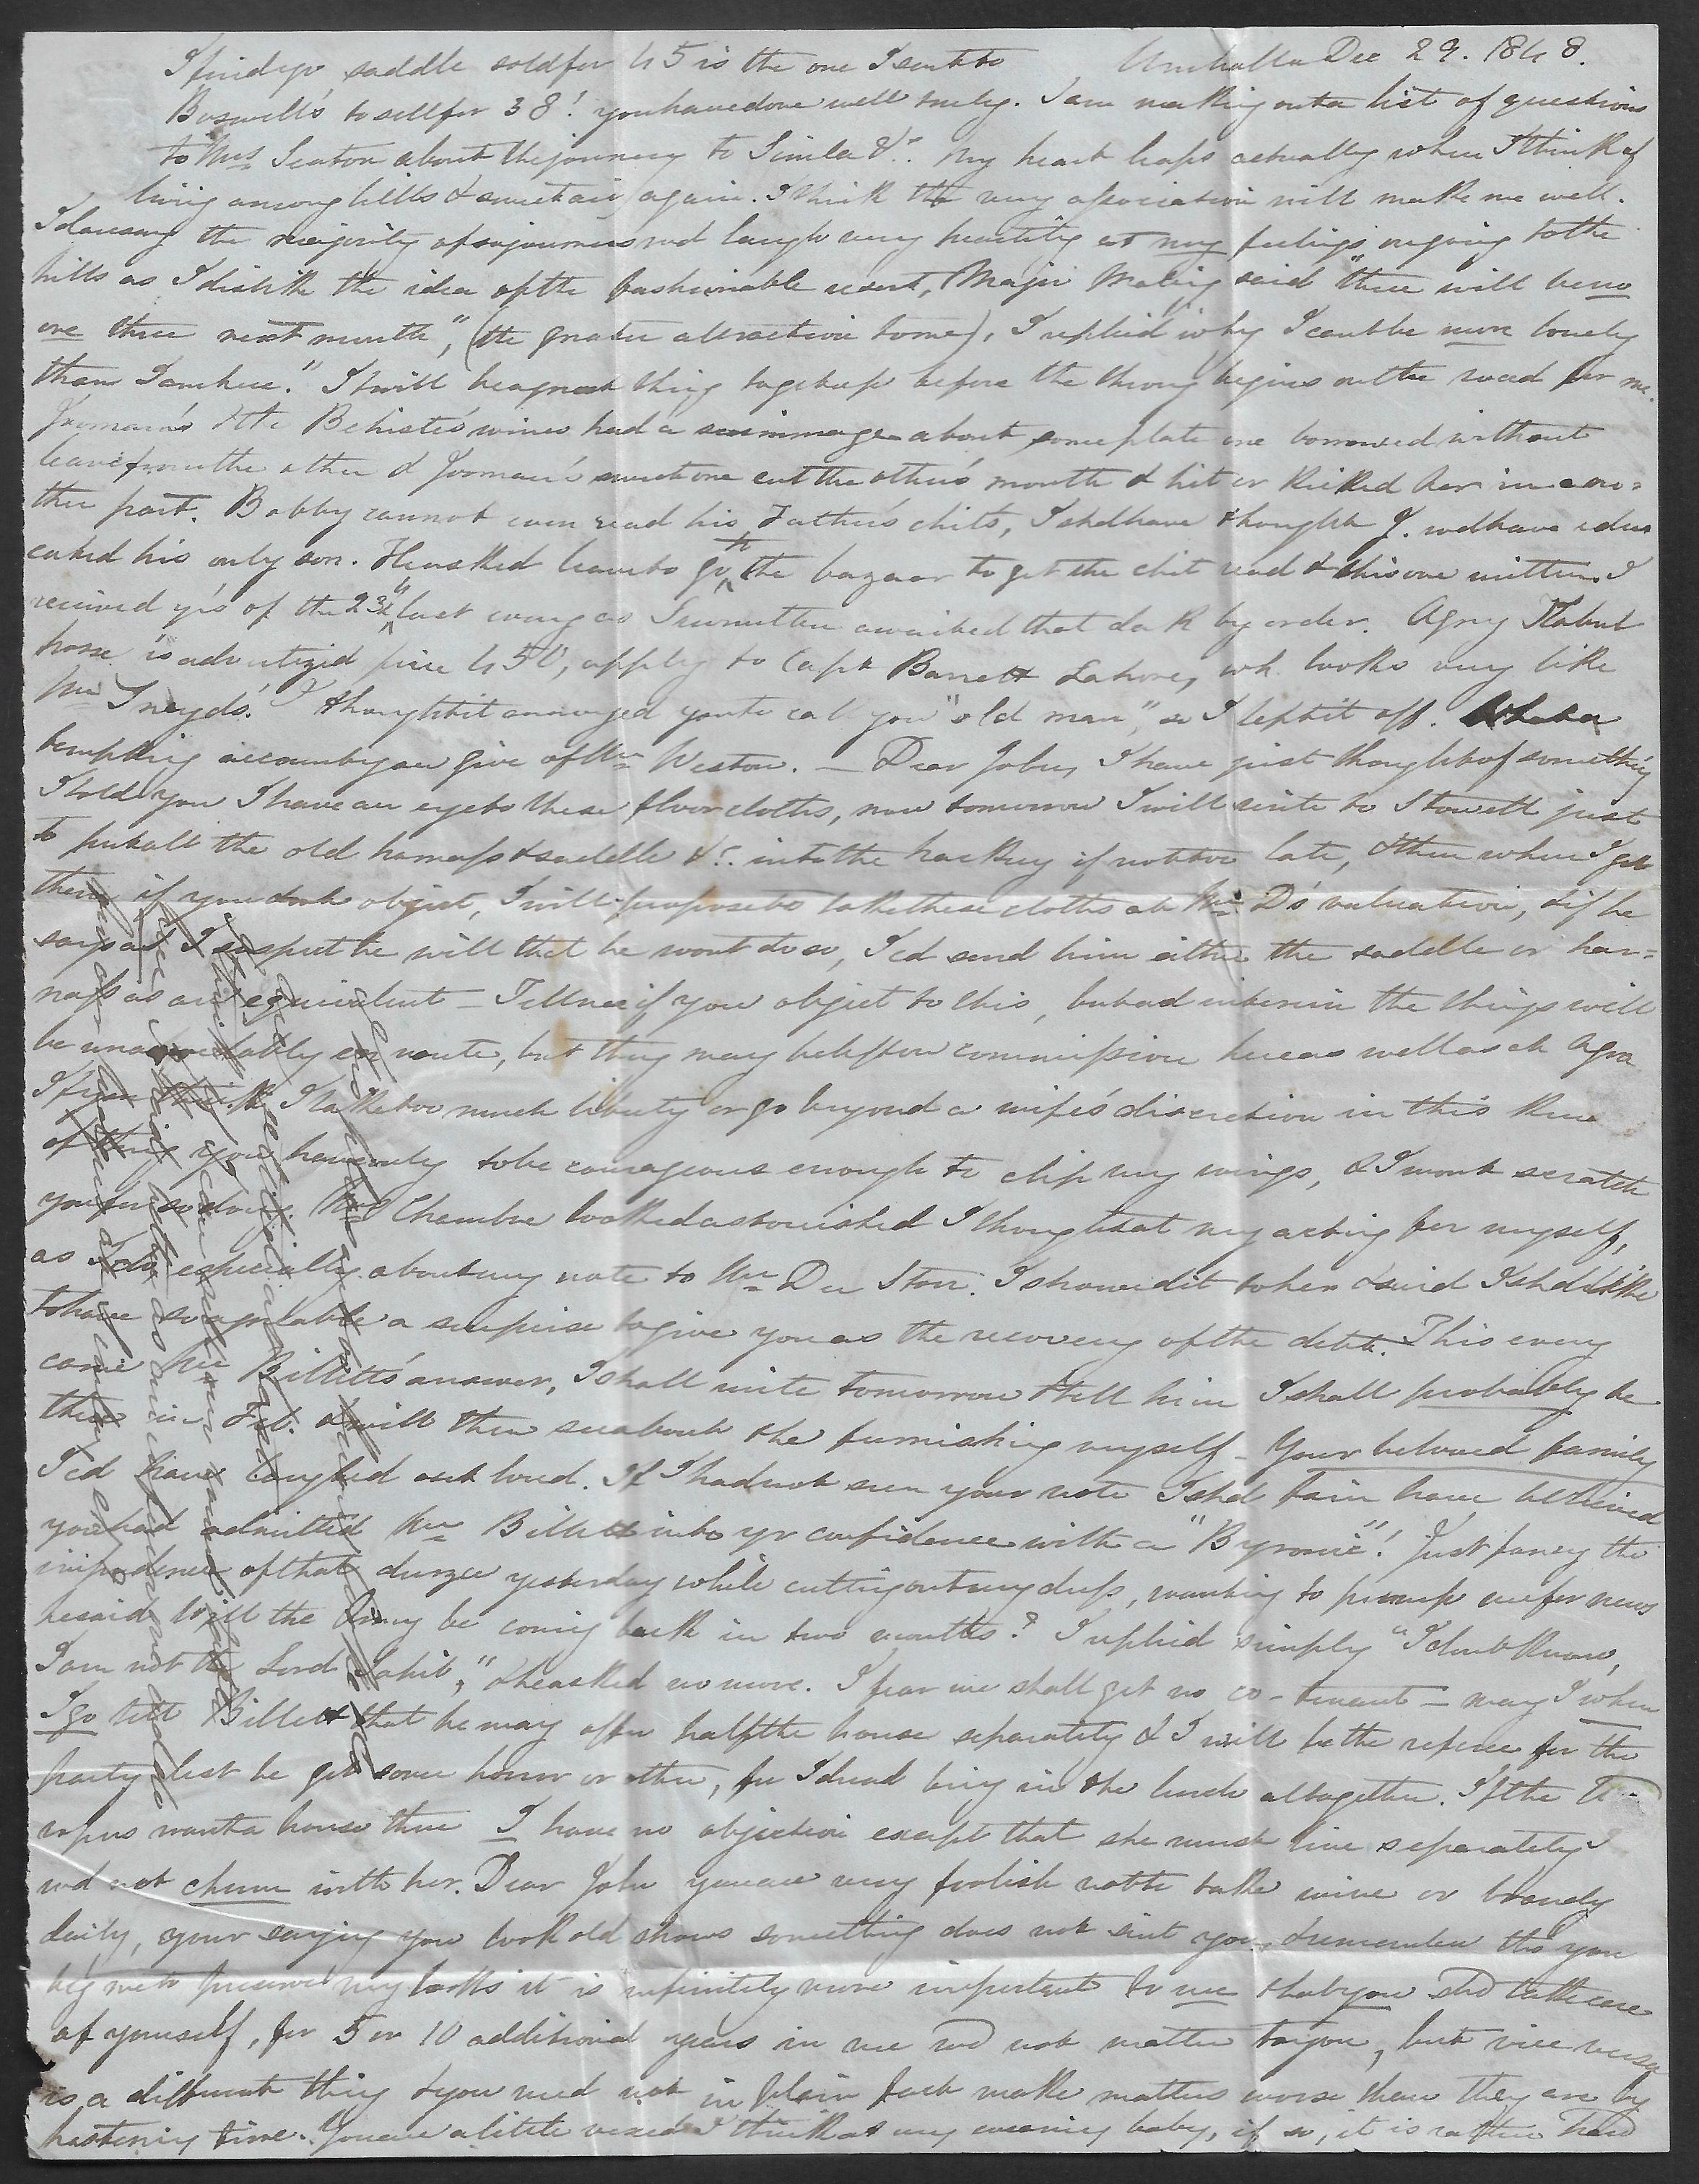 I find yr saddle sold for 45 is the one I sent to Umballa Dec 29. 1848.
Boswell's to sell for 38! you have done well truly. I am making out a list of questions
to Mrs Seaton about the journey to Simla &c. My heart leaps actually when I think of
living among hills & mountain again. I think the very association will make me well.
I daresay the majority of sojourners wd laugh very heartily at my feelings on going to the
hills as I dislike the idea of the fashionable resort, Major Maling said "there will be no
one there next month", (the greater attraction to me), I replied "why I cant be more lonely
than I am here." It will be a great thing to get up before the throng begins on the road for me.
Jooman's & the Behistee's wives had a scrimmage about some plate one borrowed without
leave from the other & Jooman's sweet one cut the other's mouth & hit or kicked her in ano=
ther part. Bobby cannot even read his Father's chits, I shd have thought J. wd have edu
cated his only son. He asked leave to go to the bazaar to get the chit read & this one written. I
received yrs of the 23d last eveng as I unwritten awaited that dak by order. A grey Kabul
horse is advertized price 450, apply to Capt Barrett Lahore, wh. looks very like
Mr Sneyd's. I thought it annoyed you to call you "old man", so I left it off. What a
tempting account you give of Mr Weston. — Dear John, I have just thought of something
I told you I have an eye to these floor cloths, now tomorrow I will write to Stowell just
to put all the old harness & saddle &c. into the hackery if not too late, & then when I get
them if you dont object, I will propose to take these cloths at Mr D's valuation, & if he
says as I suspect he will that he wont do so, I cd send him either the saddle or har=
ness as an equivalent — Tell me if you object to this, but ad interim the things will
be unavoidably en route, but they may be left on commission here as well as at Agra
If you think I take too much liberty or go beyond a wife's discretion in this kind
of thing you have only to be courageous enough to clip my wings, & I wont scratch
you for so doing. Mrs Chambre looked astonished I thought at my acting for myself,
as I do especially about my note to Mr De Storr. I showed it to her & said I shd like
to have so agreeable a surprise to give you as the recovery of the debt. This eveng
came Mr Billett's answer, I shall write tomorrow & tell him I shall probably be
there in Feb. & will then see about the furnishing myself — Your beloved family
I cd have laughed out loud. If I had not seen your note I shd fain have believed
you had admitted Mr Billett into yr confidence with a "Byronic"! Just fancy the
impudence of that durzee yesterday while cutting out my dress, wanting to pump me for news
he said Will the Army be coming back in two months? I replied simply "I dont know,
I am not the Lord Sahib", & he asked no more. I fear we shall get no co-tenant — may I when
I go tell Billett that he may offer half the house separately & I will be the referee for the
party lest he get some horror or other, for I dread being in the lurch altogether. If the
want a house there I have no objection except that she must live separately I
wd not chum with her. Dear John you are very foolish not to take wine or brandy
daily, & your saying you look old shows something does not suit you, & remember tho you
beg me to preserve my looks it is infinitely more important to me that you shd take care
of yourself, for 5 or 10 additional years in me wd not matter to you, but vice versa
is a different thing & you need not in plain fact make matters worse than they are by
hastening time. You are a little vexed I think at my weaning baby, if so, it is rather hard